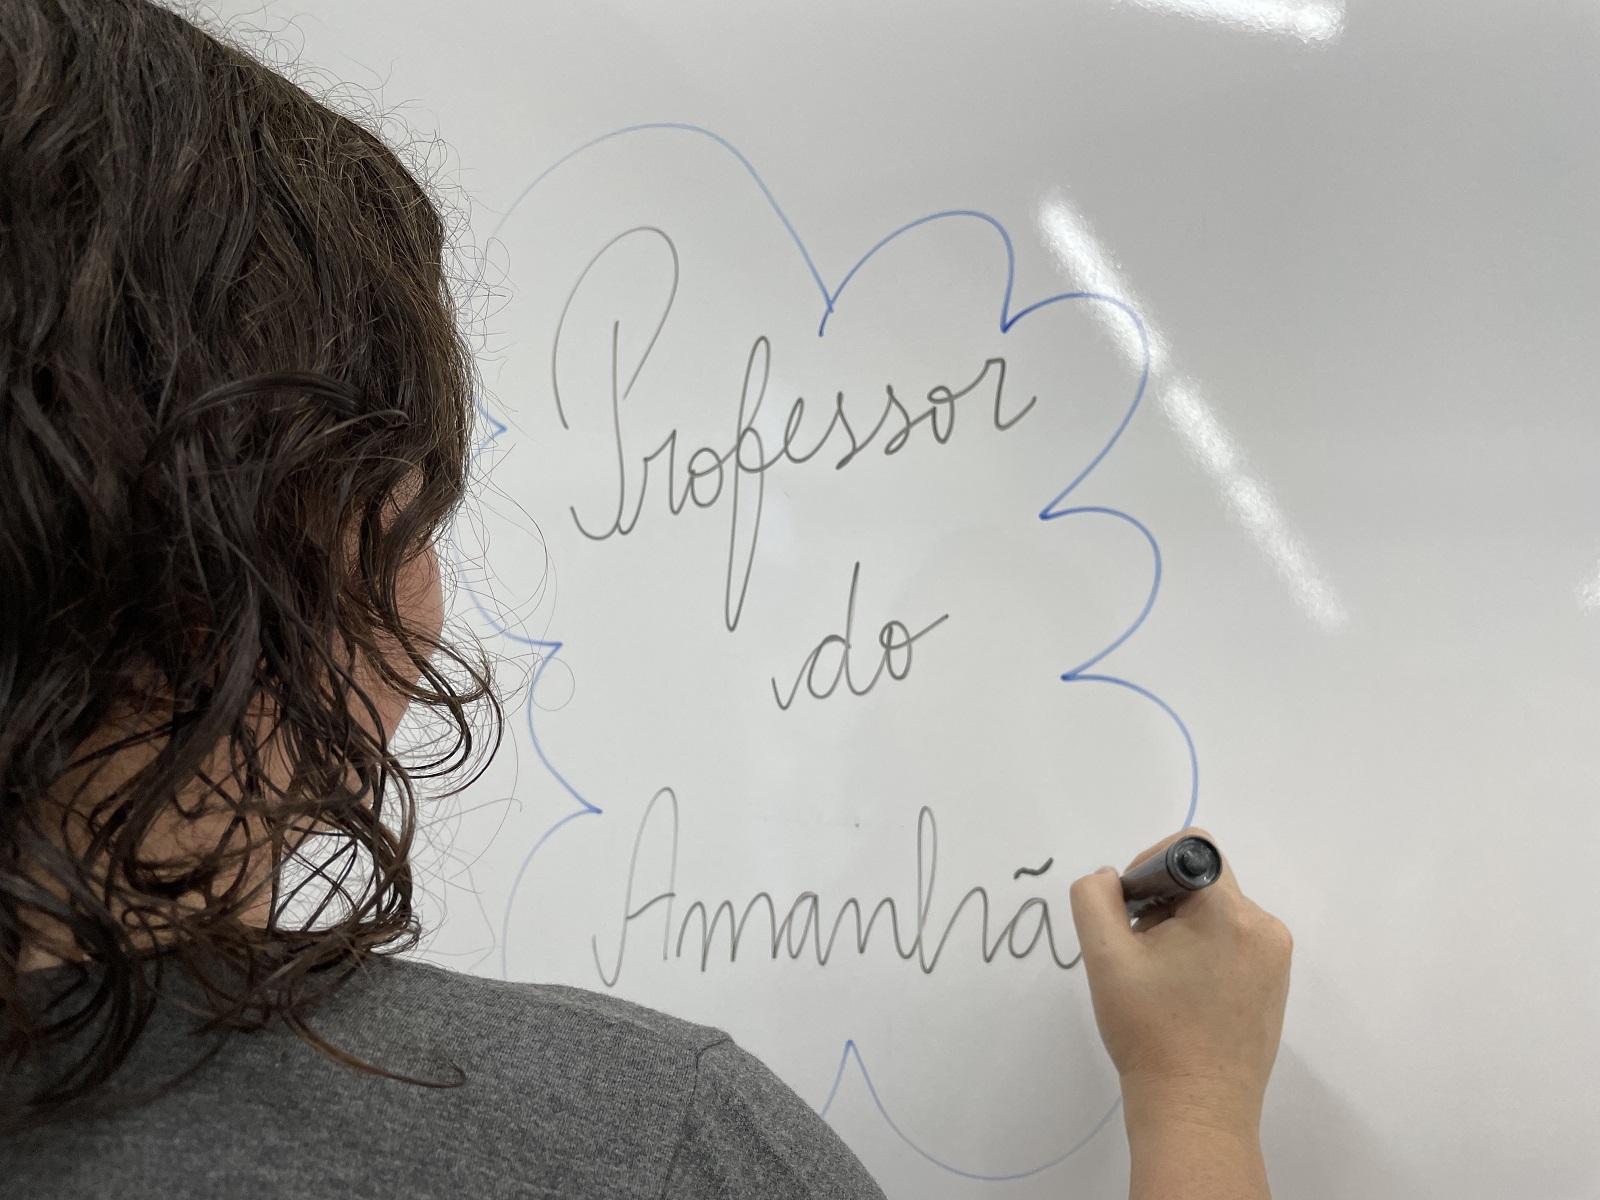 Professor
do
Amanhã